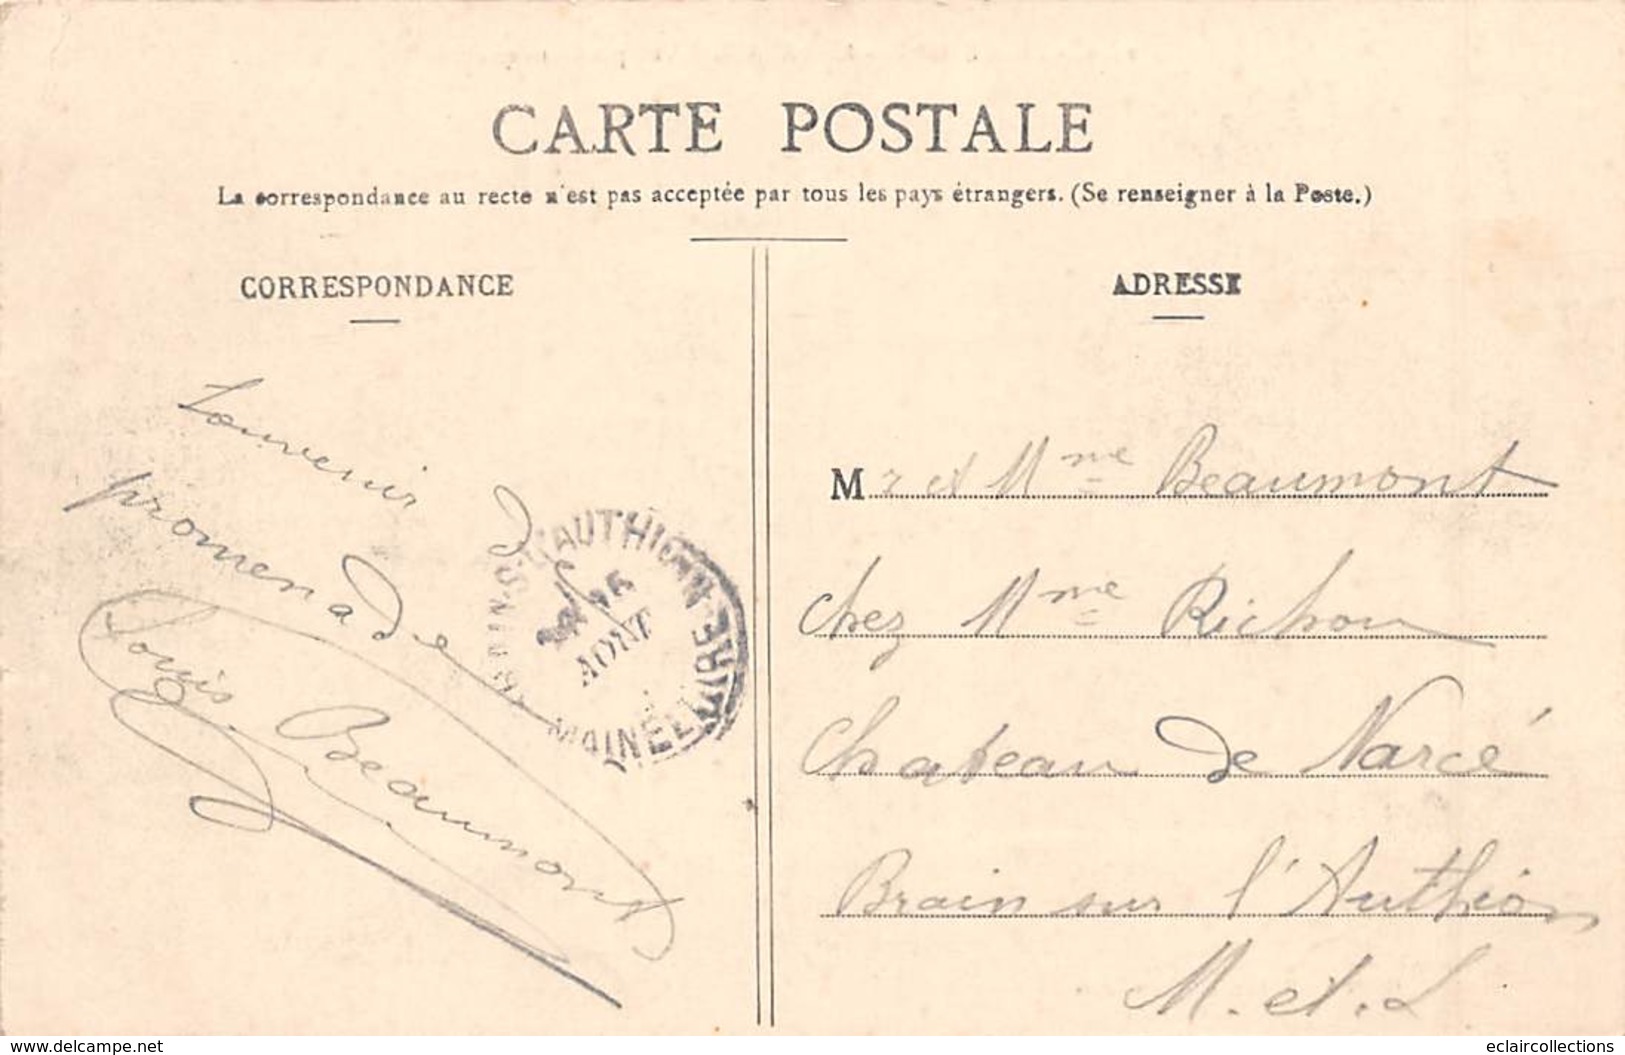 CARTE POSTALE
La correspondance au recto n'est pas acceptée par tous les pays étrangers. (Se renseigner à la Poste.)
CORRESPONDANCE
Souvenir de
promenade
Louis
Beaumont
BRAIN-S-L'AUTHION
MAINE-ET-LOIRE
AOUT
ADRESSE
Mr et Mme Beaumont
chez Mme Richou
Chateau de Narcé
Brain sur l'Authion
M. et. L
www.delcampe.net
eclaircollections